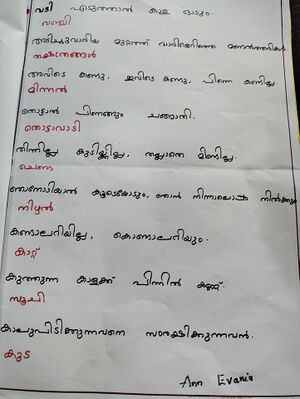 വടി എടുത്താൽ കാള ഓടും.
വഞ്ചി
അരിച്ചുവാരിയ മുറ്റത്ത് വാരിയെറിഞ്ഞ മണൽത്തരികൾ
നക്ഷത്രങ്ങൾ
അവിടെ കണ്ടു, ഇവിടെ കണ്ടു, പിന്നെ കണ്ടില്ല.
മിന്നൽ
തൊട്ടാൽ പിണങ്ങും ചങ്ങാതി.
തൊട്ടാവാടി
തിന്നില്ല കുടിക്കില്ല, തല്ലാതെ മിണ്ടില്ല.
ചെണ്ട
ഞാനോടിയാൽ കൂടെയോടും, ഞാൻ നിന്നാലൊപ്പം നിൽക്കും
നിഴൽ
കണ്ടാലറിയില്ല, കൊണ്ടാലറിയും.
കാറ്റ്
കുത്തുന്ന കാളക്ക് പിന്നിൽ കണ്ണ്.
സൂചി
കാലുപിടിക്കുന്നവനെ സംരക്ഷിക്കുന്നവൻ.
കുട
Ann Evania